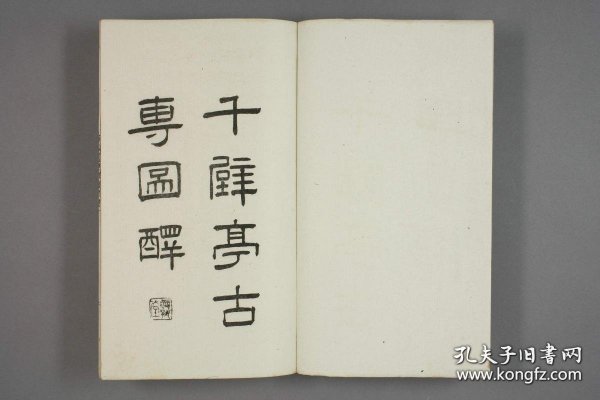 千甓亭古
專圖釋
孔夫子旧书网
www.kongfz.com